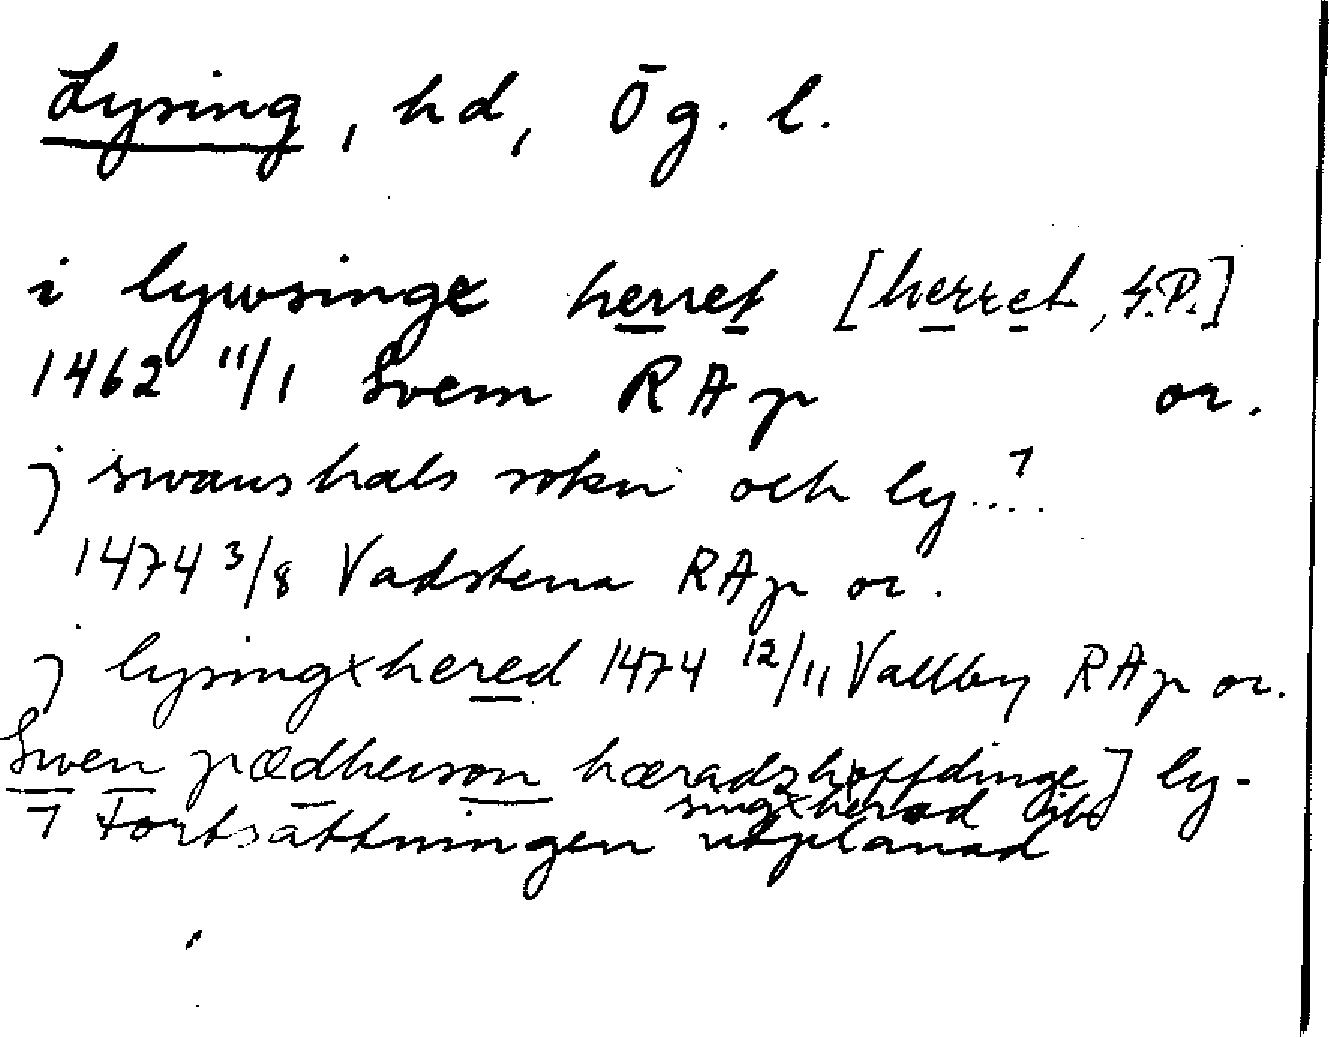 Lysing, hd, Ög. l.
i lywsinge herret [herret, S.P.]
1462 11/1 Svem RAp or.
j swanshals sokn och ly...⁊
1474 3/8 Vadstena RAp or.
j lysingxhered 1474 12/11 Vallby RAp or.
Swen pædherson hæradzhöffdinge j ly-
singxhærad ib
⁊ Fortsättningen utplånad